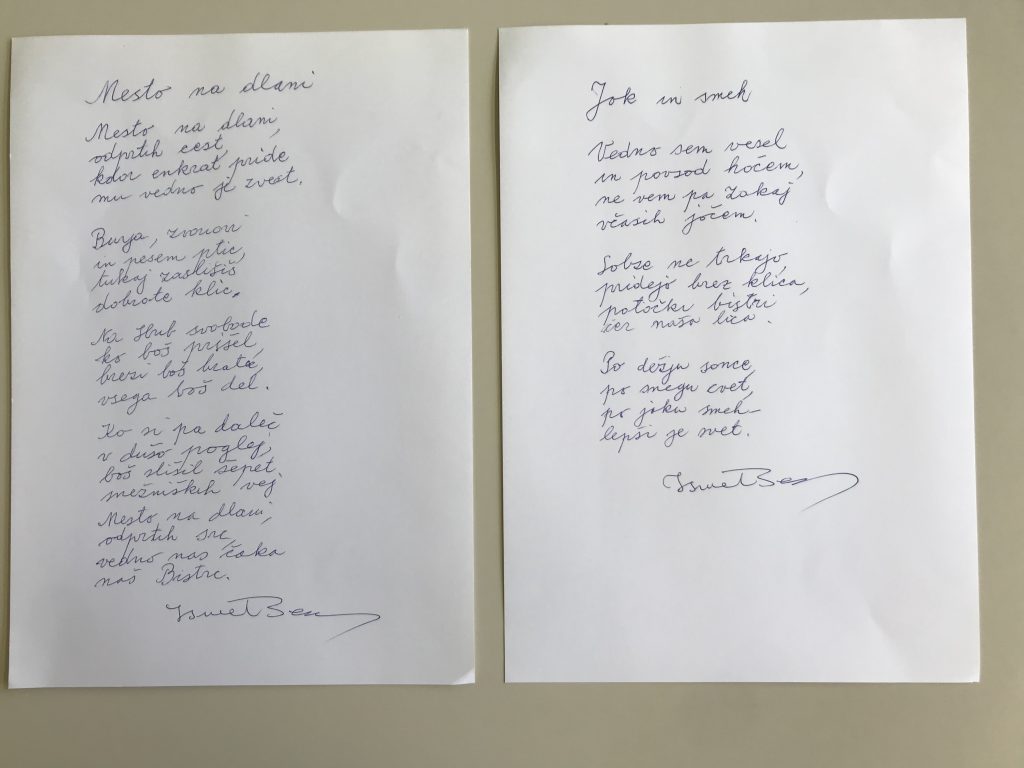 Mesto na dlani
Mesto na dlani,
odprtih cest,
kdor enkrat pride
mu vedno je zvest.
Burja, zvonovi
in pesem ptic,
tukaj zaslišiš
dobrote klic.
Na Hrib svobode
ko boš prišel,
brezi boš bratec,
vsega boš del.
Ko si pa daleč
v dušo poglej,
boš slišil šepet
smežniških vej
Mesto na dlani,
odprtih src,
vedno nas čaka
naš Bistrc.
Jok in smeh
Vedno sem vesel
in povsod hočem,
ne vem pa zakaj
včasih jočem.
Solze ne trkajo,
pridejo brez klica,
potočki bistri
čez naša lica.
Po dežju sonce,
po snegu cvet,
po joku smeh-
lepši je svet.